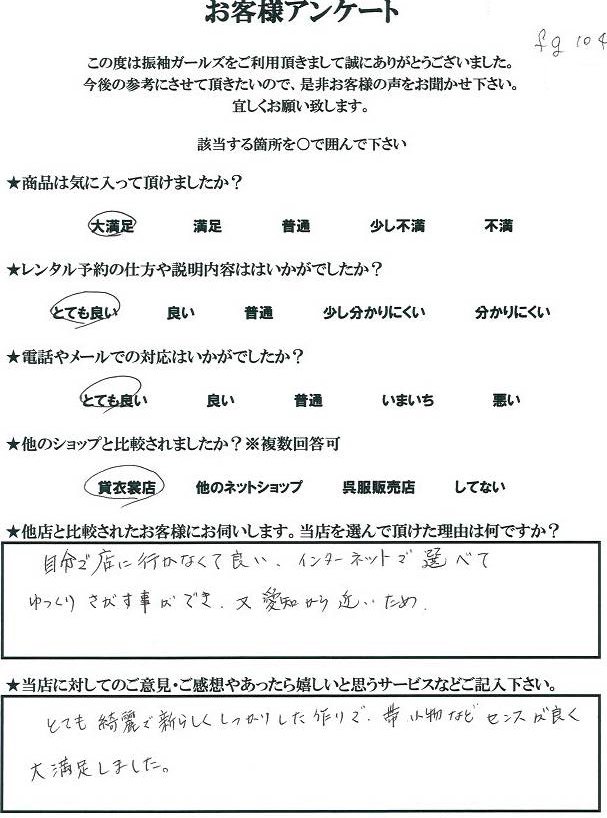 お客様アンケート
fg 104
この度は振袖ガールズをご利用頂きまして誠にありがとうございました。
今後の参考にさせて頂きたいので、是非お客様の声をお聞かせ下さい。
宜しくお願い致します。
該当する箇所を〇で囲んで下さい
★商品は気に入って頂けましたか？
大満足 満足 普通 少し不満 不満
★レンタル予約の仕方や説明内容ははいかがでしたか？
とても良い 良い 普通 少し分かりにくい 分かりにくい
★電話やメールでの対応はいかがでしたか？
とても良い 良い 普通 いまいち 悪い
★他のショップと比較されましたか？※複数回答可
貸衣裳店 他のネットショップ 呉服販売店 してない
★他店と比較されたお客様にお伺いします。当店を選んで頂けた理由は何ですか？
自分で店に行かなくて良い、インターネットで選べて
ゆっくりさがす事ができ、又愛知から近いため、
★当店に対してのご意見・ご感想やあったら嬉しいと思うサービスなどご記入下さい。
とても綺麗で新らしくしっかりした作りで、帯小物などセンスが良く
大満足しました。